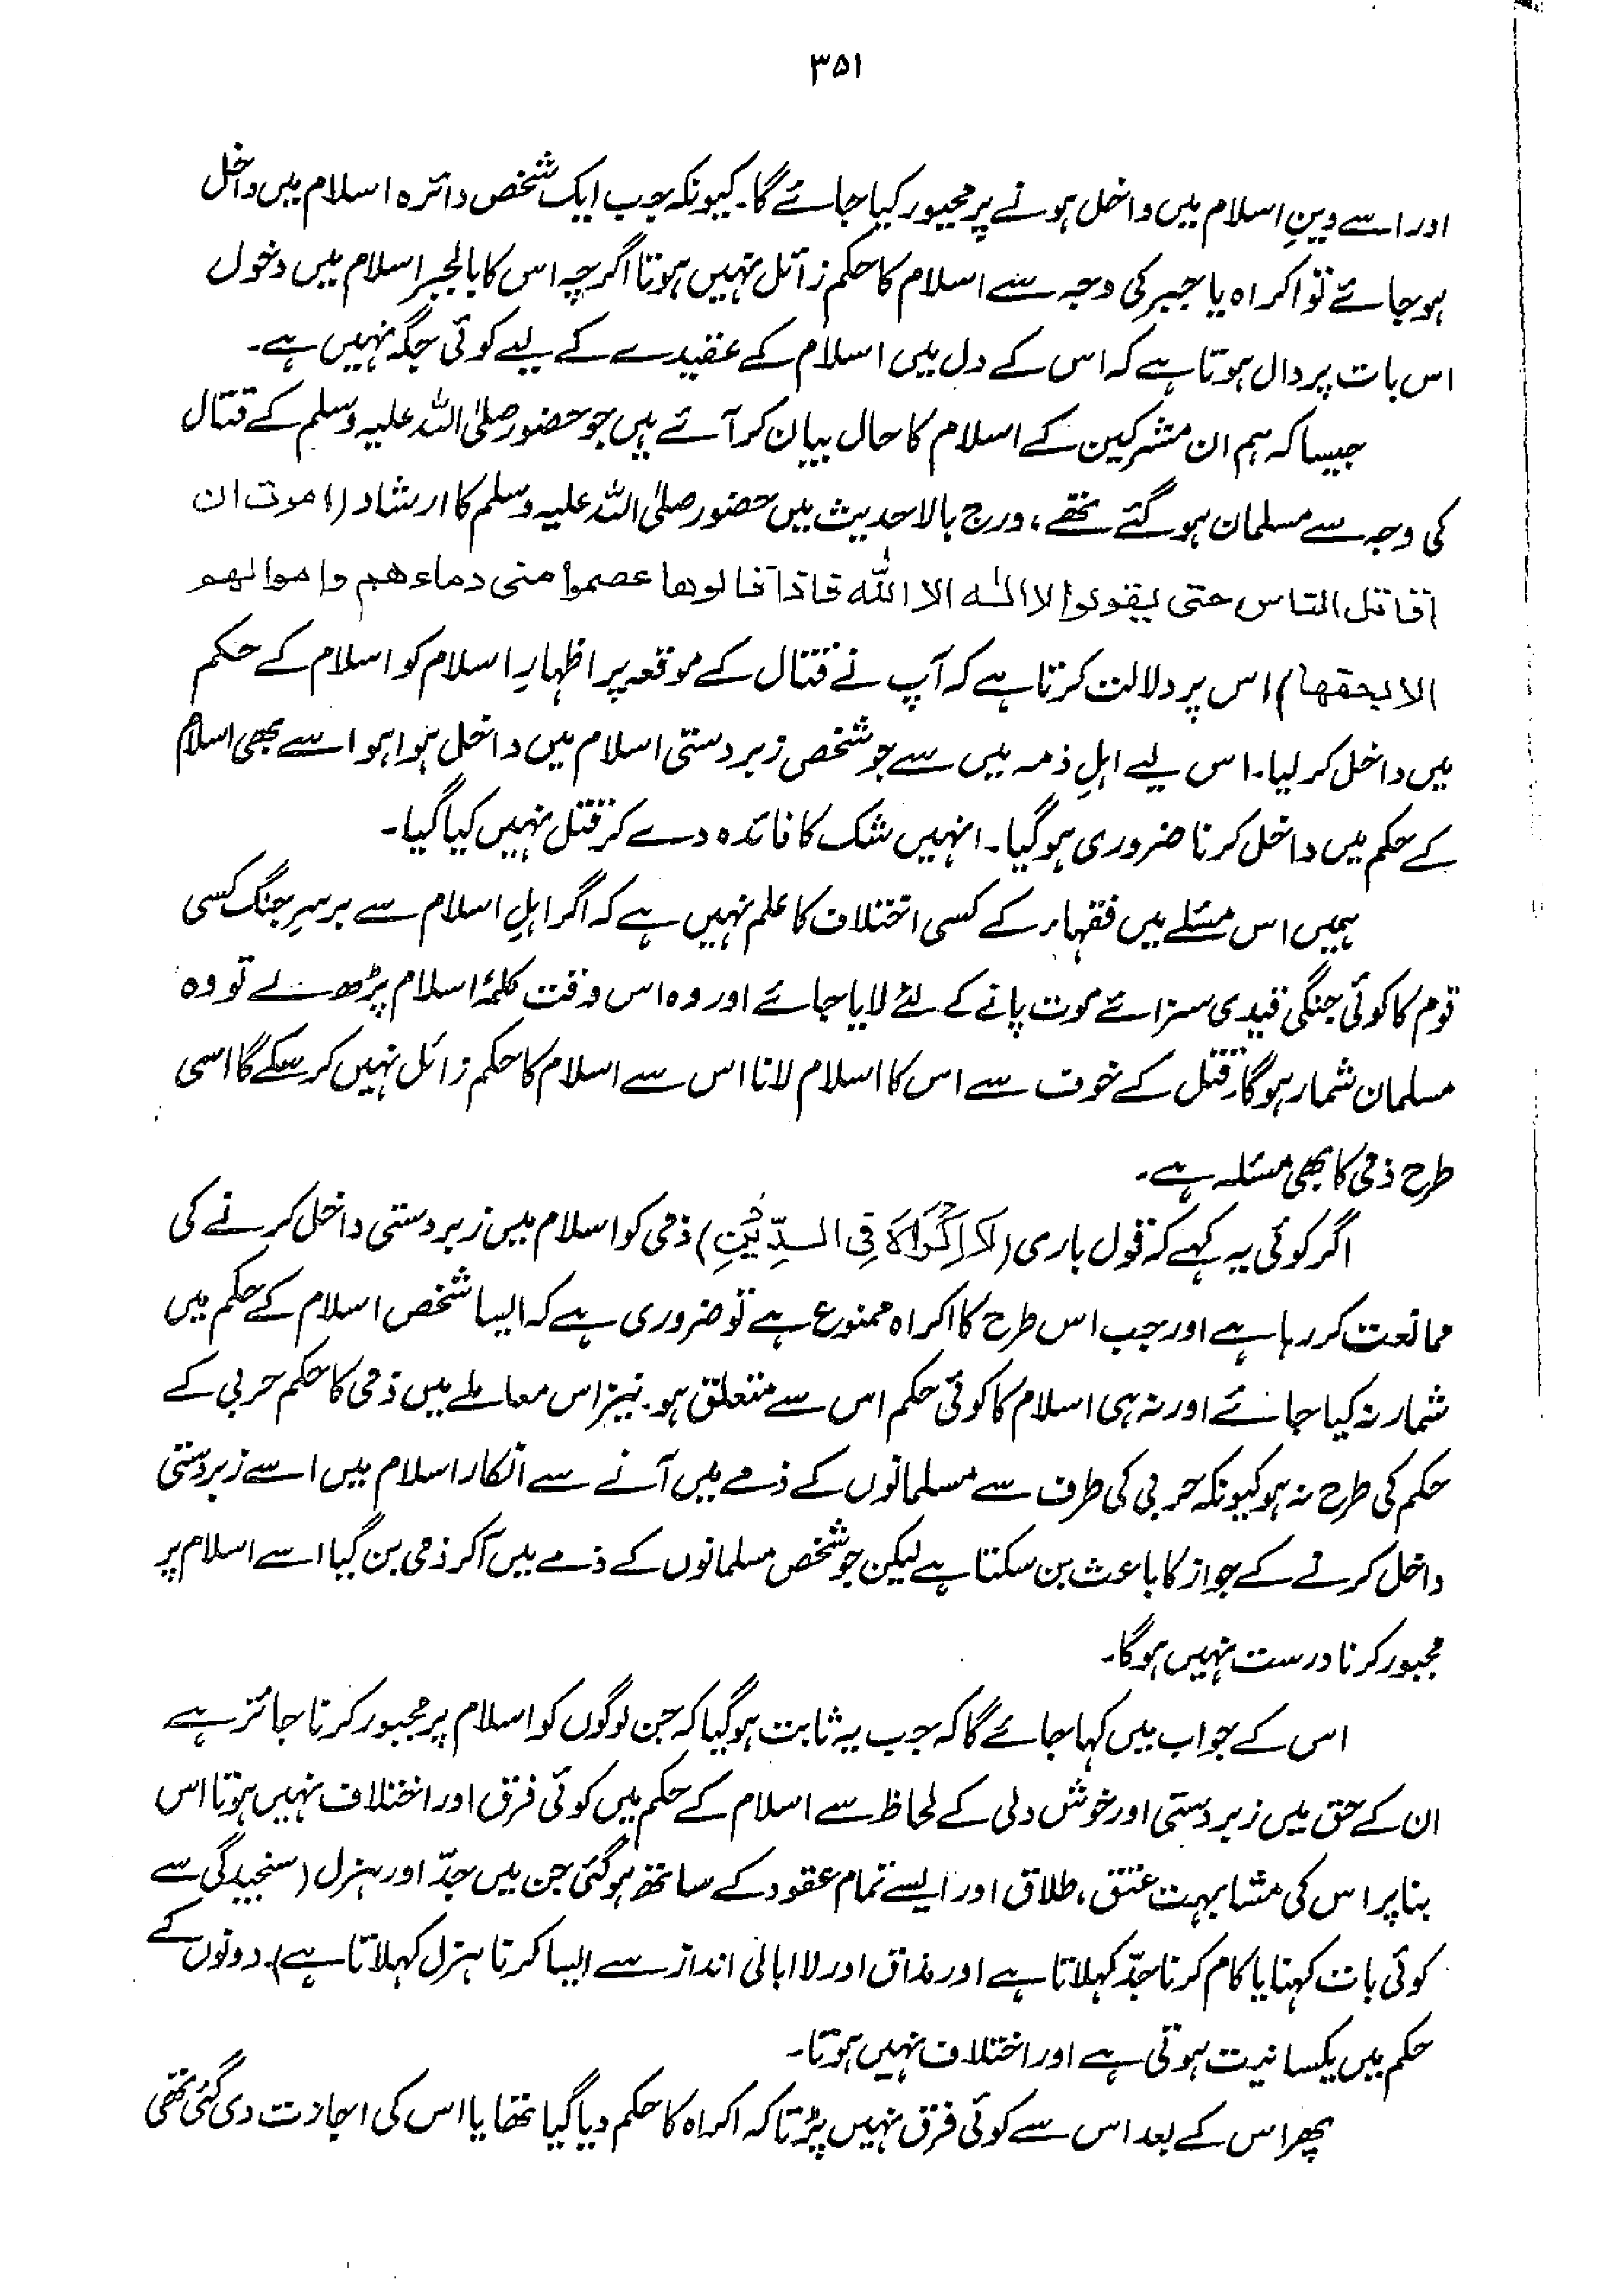 ۳۵۱
اور اسے دینِ اسلام میں داخل ہونے پر مجبور کیا جائے گا۔ کیونکہ جب ایک شخص دائرہ اسلام میں داخل
ہو جائے تو اکراہ یا جبر کی وجہ سے اسلام کا حکم زائل نہیں ہوتا اگرچہ اس کا بالجبر اسلام میں دخول
اس بات پر دال ہوتا ہے کہ اس کے دل میں اسلام کے عقیدے کے لیے کوئی جگہ نہیں ہے۔
جیسا کہ ہم ان مشرکین کے اسلام کا حال بیان کر آئے ہیں جو حضور صلی اللہ علیہ وسلم کے قتال
کی وجہ سے مسلمان ہو گئے تھے، درج بالا حدیث میں حضور صلی اللہ علیہ وسلم کا ارشاد (امرت ان
اقاتل الناس حتی یقولوا لا الٰہ الا اللہ فاذا قالوها عصموا منی دماءهم واموالهم
الا بحقها) اس پر دلالت کرتا ہے کہ آپ نے قتال کے موقعہ پر اظہارِ اسلام کو اسلام کے حکم
میں داخل کر لیا۔ اس لیے اہلِ ذمہ میں سے جو شخص زبردستی اسلام میں داخل ہوا ہو اسے بھی اسلام
کے حکم میں داخل کرنا ضروری ہو گیا۔ انہیں شک کا فائدہ دے کر قتل نہیں کیا گیا۔
ہمیں اس مسئلے میں فقہاء کے کسی اختلاف کا علم نہیں ہے کہ اگر اہلِ اسلام سے برسرِ جنگ کسی
قوم کا کوئی جنگی قیدی سزائے موت پانے کے لئے لایا جائے اور وہ اس وقت کلمۂ اسلام پڑھ لے تو وہ
مسلمان شمار ہوگا۔ قتل کے خوف سے اس کا اسلام لانا اس سے اسلام کا حکم زائل نہیں کر سکے گا اسی
طرح ذمی کا بھی مسئلہ ہے۔
اگر کوئی یہ کہے کہ قول باری (لَا اِكْرَاهَ فِی الدِّیْنِ) ذمی کو اسلام میں زبردستی داخل کرنے کی
ممانعت کر رہا ہے اور جب اس طرح کا اکراہ ممنوع ہے تو ضروری ہے کہ ایسا شخص اسلام کے حکم میں
شمار نہ کیا جائے اور نہ ہی اسلام کا کوئی حکم اس سے متعلق ہو۔ نیز اس معاملے میں ذمی کا حکم حربی کے
حکم کی طرح نہ ہو کیونکہ حربی کی طرف سے مسلمانوں کے ذمے میں آنے سے انکار اسلام میں اسے زبردستی
داخل کرنے کے جواز کا باعث بن سکتا ہے لیکن جو شخص مسلمانوں کے ذمے میں آکر ذمی بن گیا اسے اسلام پر
مجبور کرنا درست نہیں ہوگا۔
اس کے جواب میں کہا جائے گا کہ جب یہ ثابت ہو گیا کہ جن لوگوں کو اسلام پر مجبور کرنا جائز ہے
ان کے حق میں زبردستی اور خوش دلی کے لحاظ سے اسلام کے حکم میں کوئی فرق اور اختلاف نہیں ہوتا اس
بنا پر اس کی مشابہت عتق، طلاق اور ایسے تمام عقود کے ساتھ ہو گئی جن میں جدّ اور ہزل (سنجیدگی سے
کوئی بات کہنا یا کام کرنا جدّ کہلاتا ہے اور مذاق اور لا ابالی انداز سے ایسا کرنا ہزل کہلاتا ہے)۔ دونوں کے
حکم میں یکسانیت ہوتی ہے اور اختلاف نہیں ہوتا۔
پھر اس کے بعد اس سے کوئی فرق نہیں پڑتا کہ اکراہ کا حکم دیا گیا تھا یا اس کی اجازت دی گئی تھی